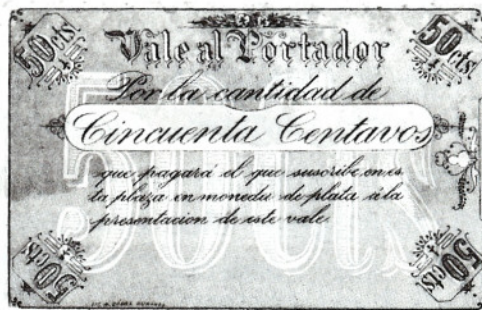 50 cts. 50 cts.
Vale al Portador
Por la cantidad de
Cincuenta Centavos
50 cts
que pagará el que suscribe en es
ta plaza en moneda de plata á la
presentacion de este vale.
50 cts 50 cts.